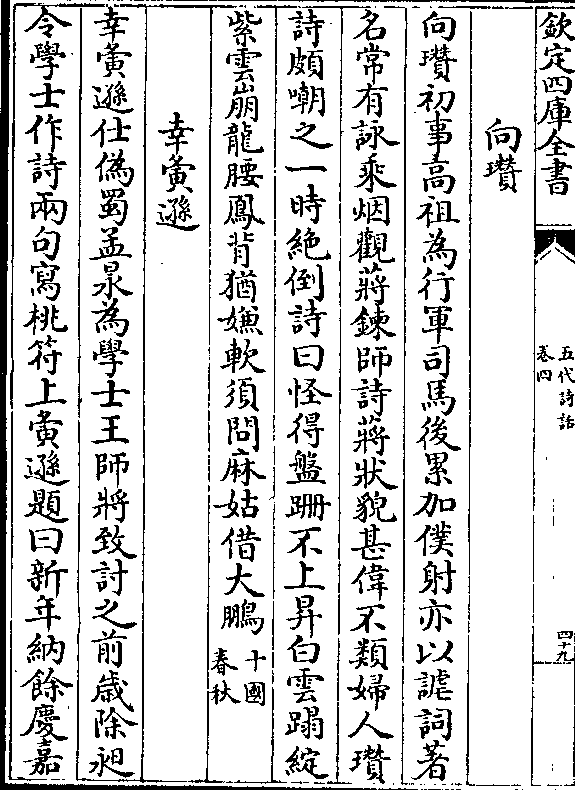 欽定四庫全書
五代詩話
卷四
四十九
向瓚
向瓚初事高祖為行軍司馬後累加僕射亦以謔詞著
名常有詠乘烟觀蔣鍊師詩蔣狀貌甚偉不類婦人瓚
詩頗嘲之一時絶倒詩曰怪得盤跚不上昇白雲蹋綻
紫雲崩龍腰鳳背猶嫌軟須問麻姑借大鵬十國春秋
幸夤遜
幸夤遜仕偽蜀孟昶為學士王師將致討之前歳除昶
令學士作詩兩句寫桃符上夤遜題曰新年納餘慶嘉